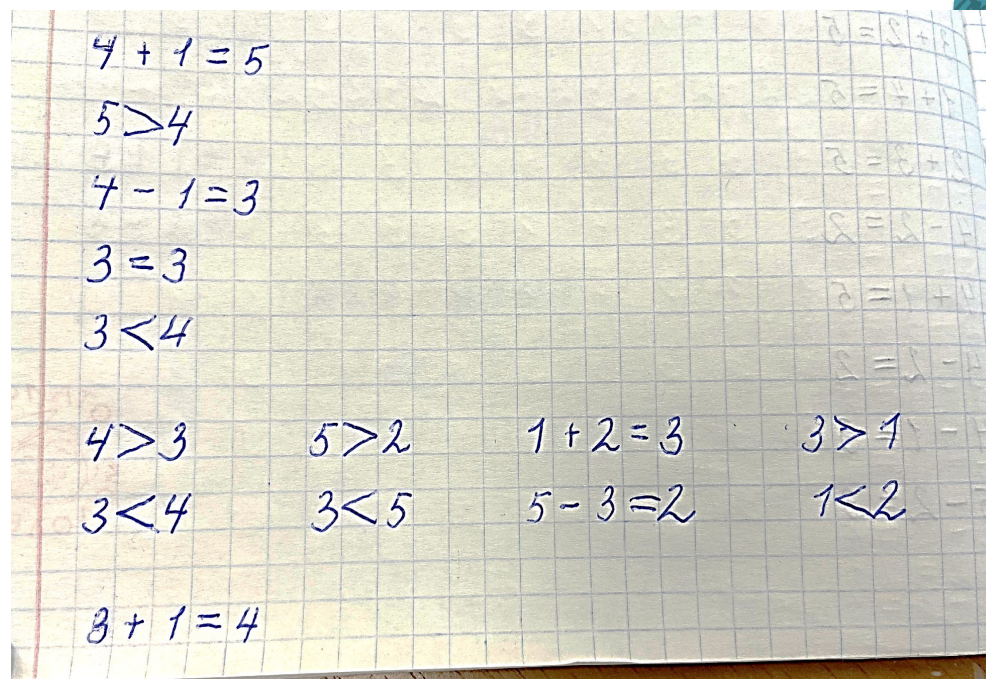 4 + 1 = 5
5 > 4
4 - 1 = 3
3 = 3
3 < 4
4 > 3 5 > 2 1 + 2 = 3 3 > 1
3 < 4 3 < 5 5 - 3 = 2 1 < 2
3 + 1 = 4